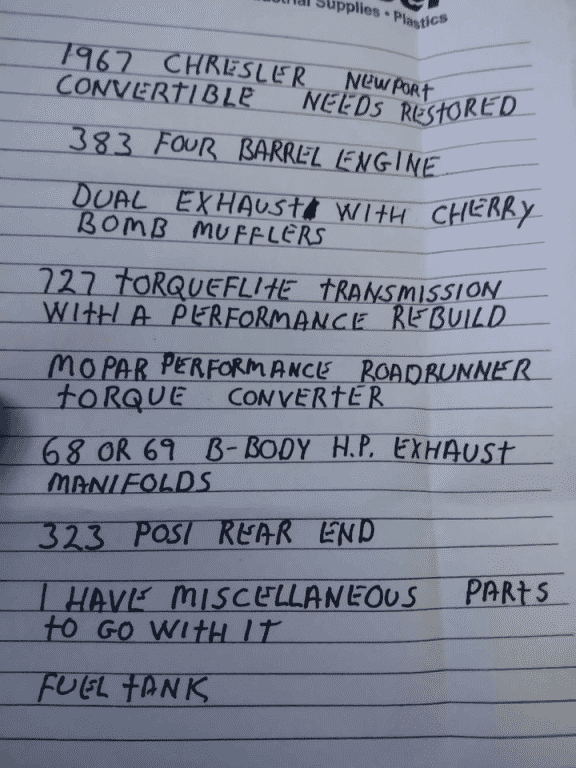 Supplies • Plastics
1967 CHRESLER NEWPORT
CONVERTIBLE NEEDS RESTORED
383 FOUR BARREL ENGINE
DUAL EXHAUST WITH CHERRY
BOMB MUFFLERS
727 TORQUEFLITE TRANSMISSION
WITH A PERFORMANCE REBUILD
MOPAR PERFORMANCE ROADRUNNER
TORQUE CONVERTER
68 OR 69 B-BODY H.P. EXHAUST
MANIFOLDS
323 POSI REAR END
I HAVE MISCELLANEOUS PARTS
TO GO WITH IT
FUEL TANK